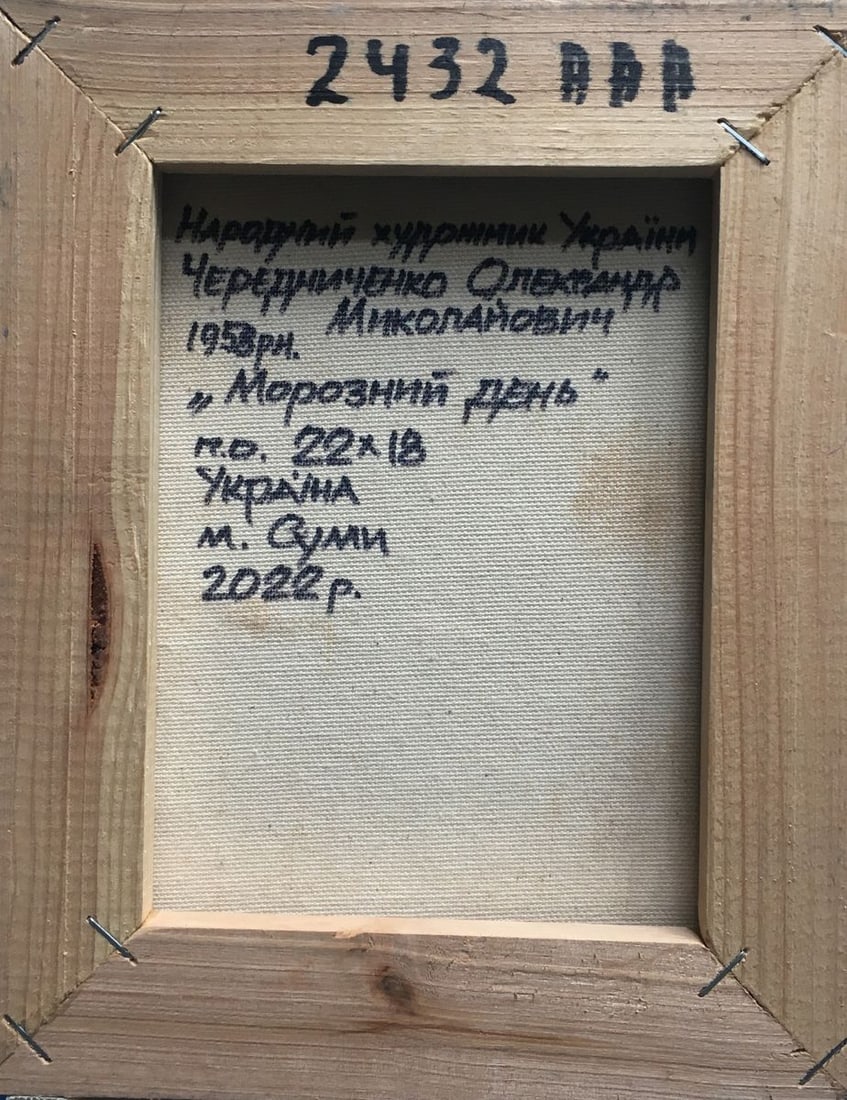 2432 AAA
Народний художник України
Чередниченко Олександр
Миколайович
1953рн.
„Морозний день"
п.о. 22×18
Україна
м. Суми
2022р.